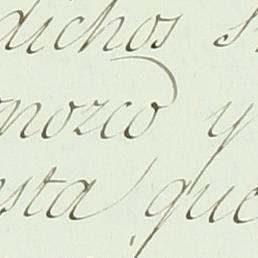 dichos s
onozco y
esta que